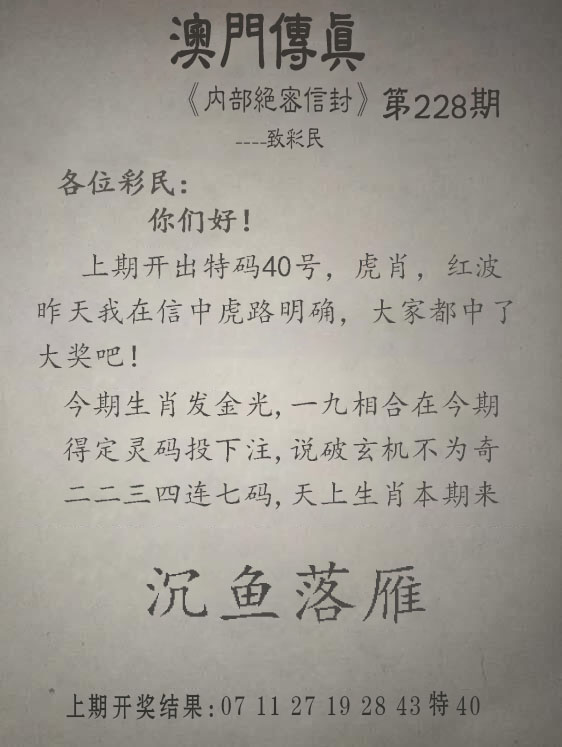 澳門傳真
《内部絕密信封》第228期
----致彩民
各位彩民:
你们好!
上期开出特码40号，虎肖，红波
昨天我在信中虎路明确，大家都中了
大奖吧!
今期生肖发金光,一九相合在今期
得定灵码投下注,说破玄机不为奇
二二三四连七码,天上生肖本期来
沉鱼落雁
上期开奖结果:07 11 27 19 28 43特40